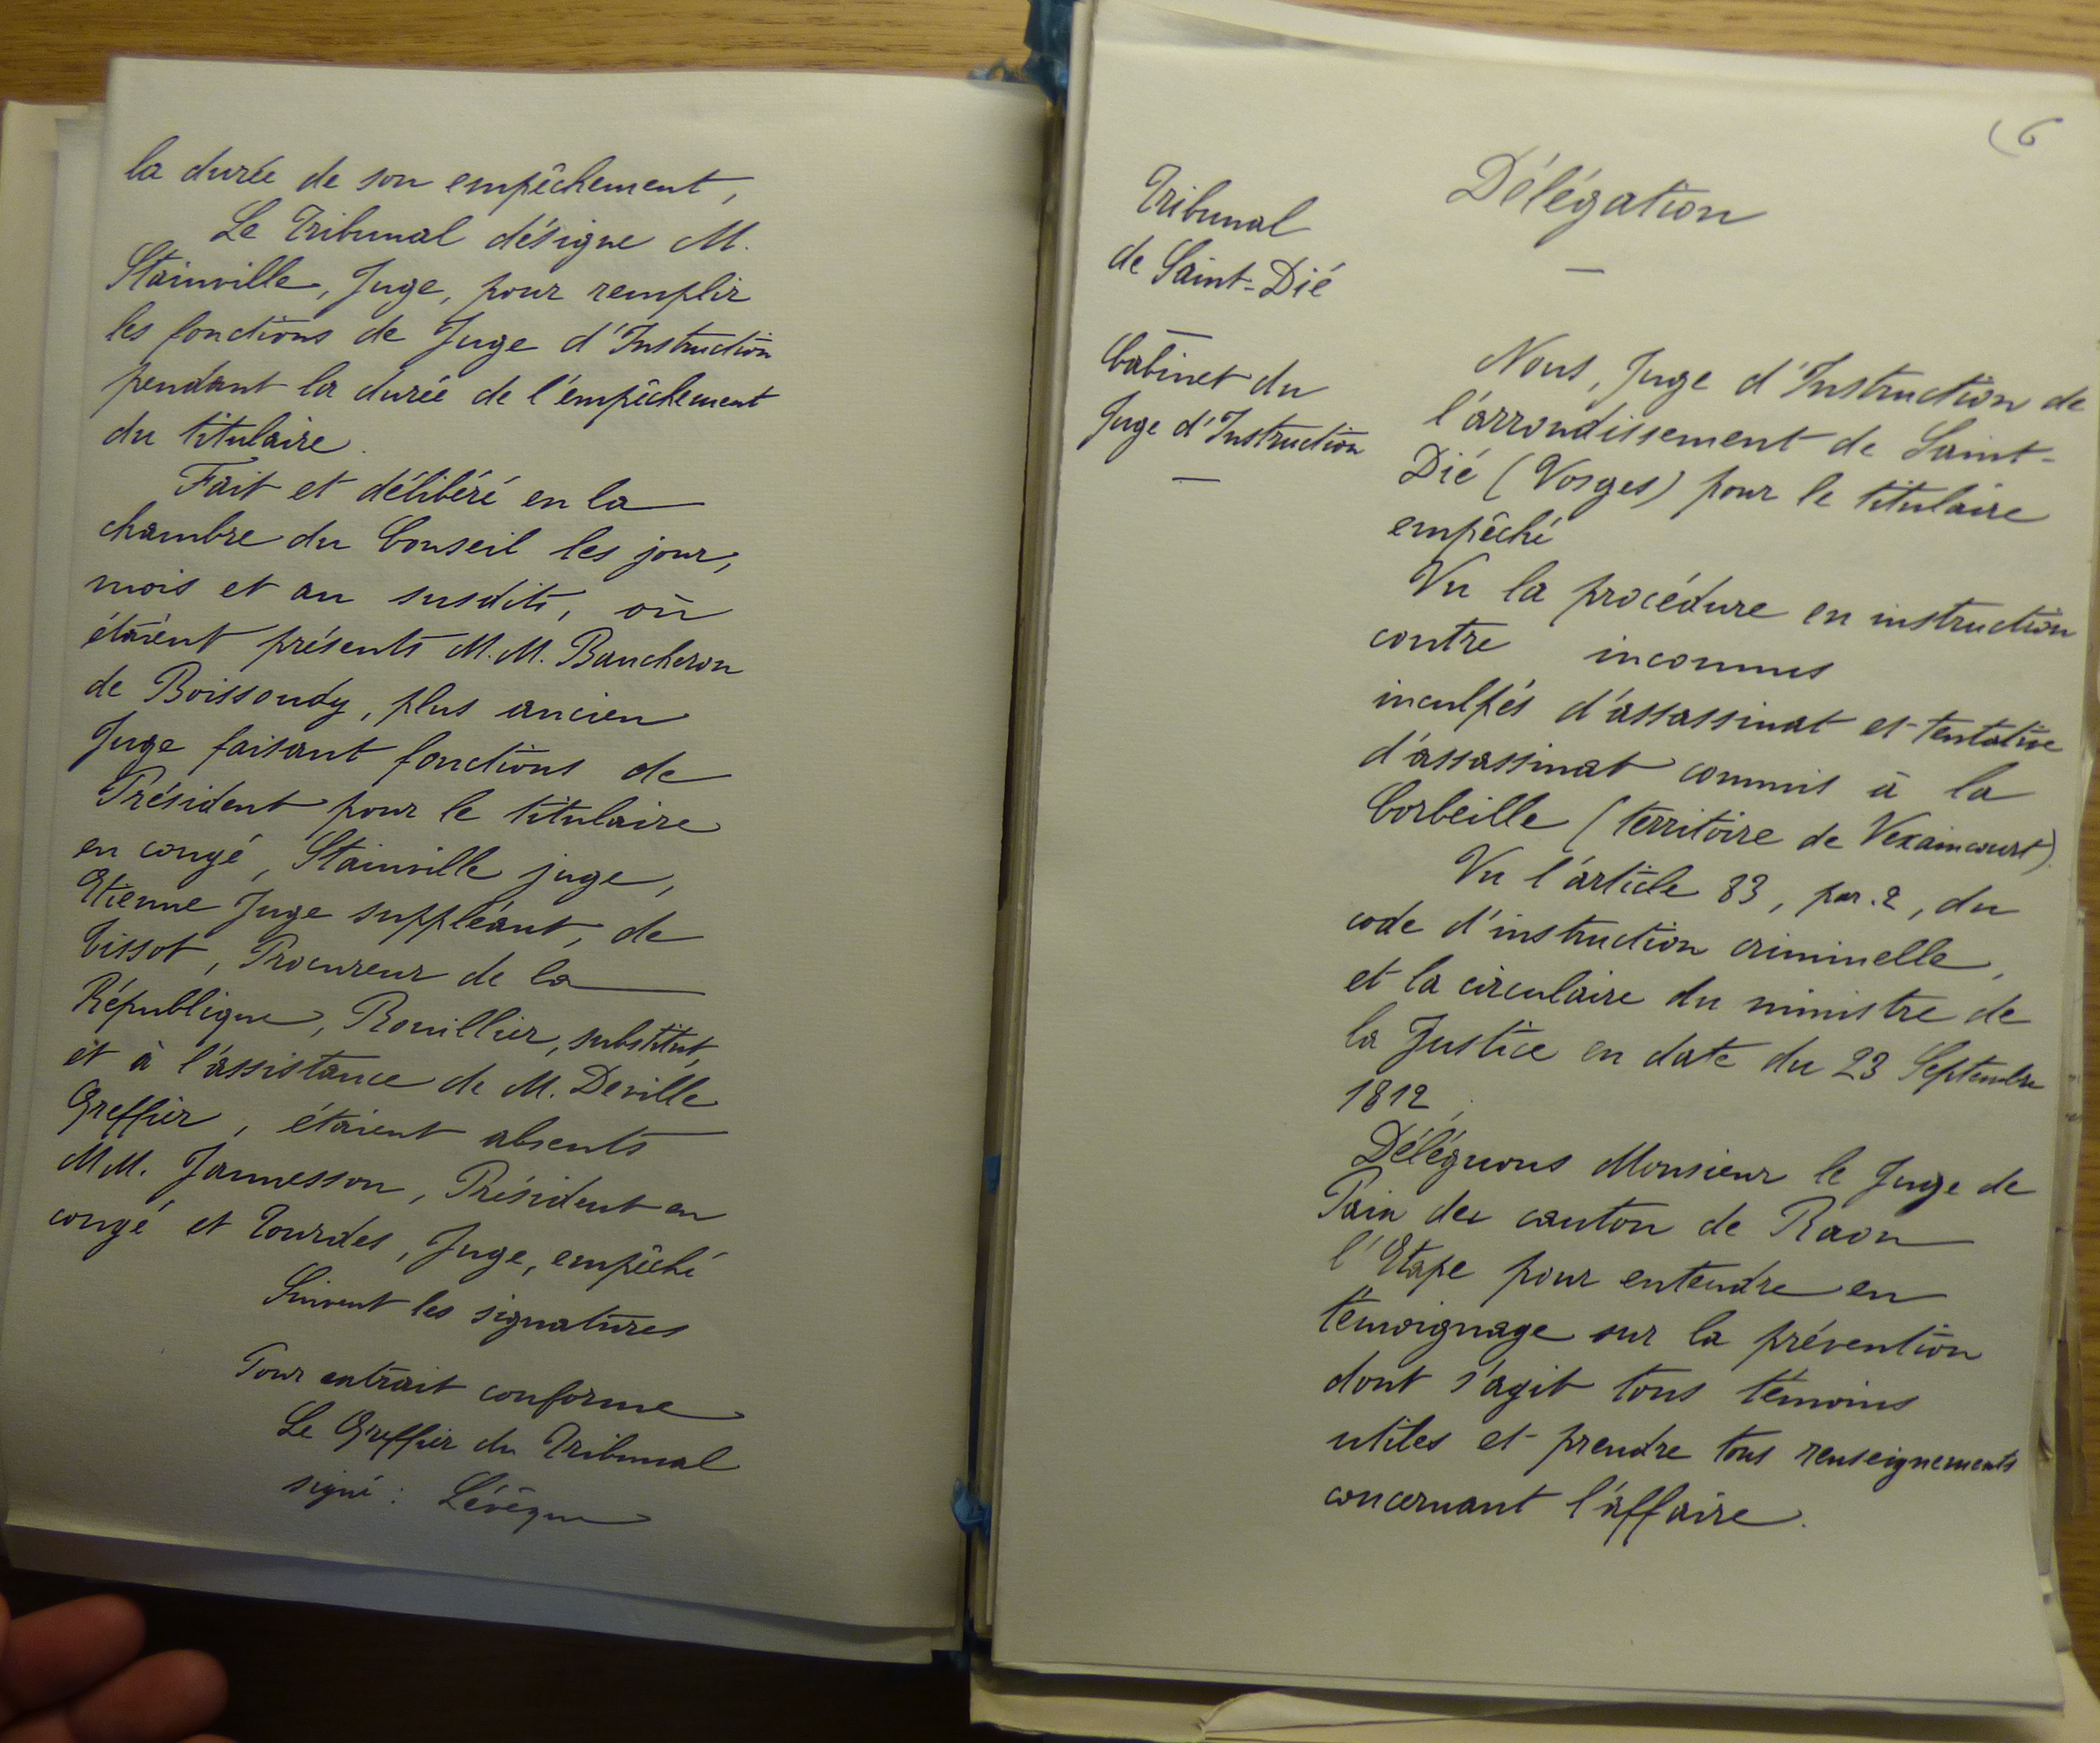 la durée de son empêchement,
Le Tribunal désigne M.
Stainville, Juge, pour remplir
les fonctions de Juge d'Instruction
pendant la durée de l'empêchement
du titulaire.
Fait et délibéré en la
chambre du Conseil les jour,
mois et an susdits, où
étaient présents M.M. Baucheron
de Boissoudy, plus ancien
Juge faisant fonctions de
Président pour le titulaire
en congé, Stainville juge,
Etienne Juge suppléant, de
Tissot, Procureur de la
République, Rouillier, substitut,
et à l'assistance de M. Deville
Greffier, étaient absents
MM. Jannesson, Président en
congé et Tourdes, Juge, empêché
Suivent les signatures
Pour extrait conforme
Le Greffier du Tribunal
signé : Lévêque
6
Délégation
Tribunal
de Saint-Dié
Cabinet du
Juge d'Instruction
Nous, Juge d'Instruction de
l'arrondissement de Saint-
Dié (Vosges) pour le titulaire
empêché
Vu la procédure en instruction
contre inconnus
inculpés d'assassinat et tentative
d'assassinat commis à la
Corbeille (territoire de Vexaincourt).
Vu l'article 83, par. 2, du
code d'instruction criminelle,
et la circulaire du ministre de
la Justice en date du 23 Septembre
1812,
Déléguons Monsieur le Juge de
Paix du canton de Raon
l'Etape pour entendre en
témoignage sur la prévention
dont s'agit tous témoins
utiles et prendre tous renseignements
concernant l'affaire.